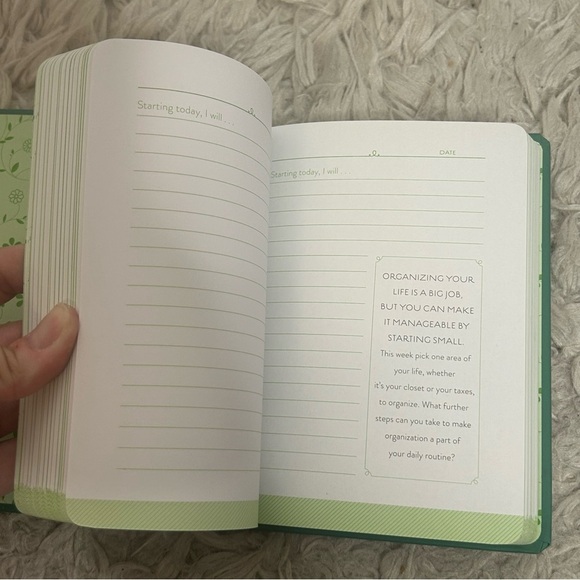 Starting today, I will . . .
DATE
Starting today, I will . . .
ORGANIZING YOUR
LIFE IS A BIG JOB,
BUT YOU CAN MAKE
IT MANAGEABLE BY
STARTING SMALL.
This week pick one area of
your life, whether
it's your closet or your taxes,
to organize. What further
steps can you take to make
organization a part of
your daily routine?